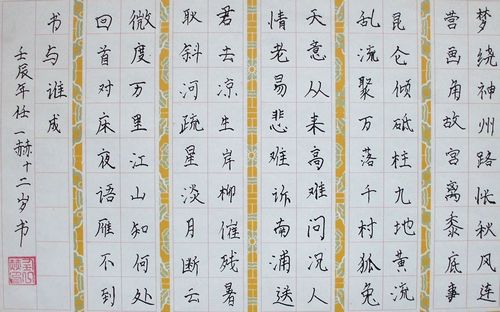 梦绕神州路怅秋风连
营画角故宫离黍底事
昆仑倾砥柱九地黄流
乱流聚万落千村狐兔
天意从来高难问况人
情老易悲难诉南浦送
君去凉生岸柳催残暑
耿斜河疏星淡月断云
微度万里江山知何处
回首对床夜语雁不到
书与谁成
壬辰年任一赫十二岁书